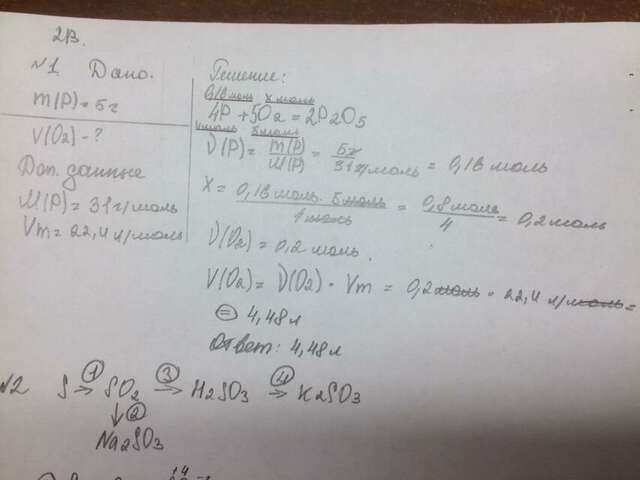 2В.
№1 Дано.
m(P) = 5г
V(O₂) - ?
Доп. данные
M(P) = 31г/моль
Vm = 22,4 л/моль
Решение:
0,16 моль x моль
4P + 5O₂ = 2P₂O₅
4 моль 5 моль
ν(P) = m(P)/M(P) = 5г/31г/моль = 0,16 моль
X = 0,16 моль · 5 моль/4 моль = 0,8 моль/4 = 0,2 моль
ν(O₂) = 0,2 моль.
V(O₂) = ν(O₂) · Vm = 0,2 моль · 22,4 л/моль =
= 4,48 л
Ответ: 4,48 л
№2 S →① SO₂ →③ H₂SO₃ →④ K₂SO₃
↓②
Na₂SO₃